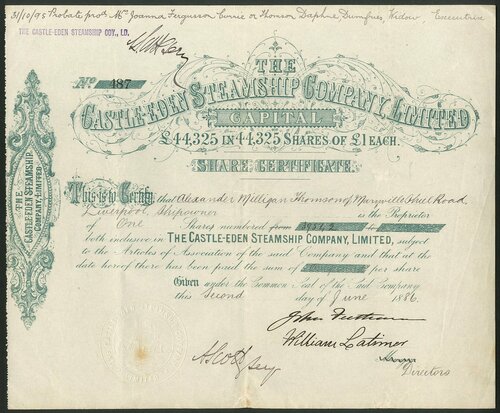 31/10/95 Probate prod. Mrs Joanna Ferguson Currie or Thomson Daphne Dumfries, Widow, Executrix
THE CASTLE-EDEN STEAMSHIP COY., LD.
No 487
THE
CASTLE-EDEN STEAMSHIP COMPANY, LIMITED
CAPITAL
£44,325 IN 44,325 SHARES OF £1 EACH.
SHARE CERTIFICATE.
THE CASTLE-EDEN STEAMSHIP COMPANY, LIMITED.
This is to Certify that Alexander Milligan Thomson of Maryville Road
Liverpool, Shipowner is the Proprietor
of One Shares numbered from to
both inclusive in THE CASTLE-EDEN STEAMSHIP COMPANY, LIMITED, subject
to the Articles of Association of the said Company and that at the
date hereof there has been paid the sum of per share
Given under the Common Seal of the Said Company
this Second day of June 1886.
William Latimer
Secy
Directors